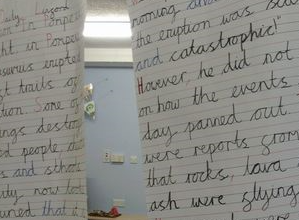 Daily
in Pompeii
ht in Pompeii
erupted
t trails of
tion. Some of
ngs destro
d people d
s and
now lo
urned that
morning
the eruption was
and catastrophic!"
However, he did not
on how the events
day panned out.
were reports
that rocks, lava
ash were